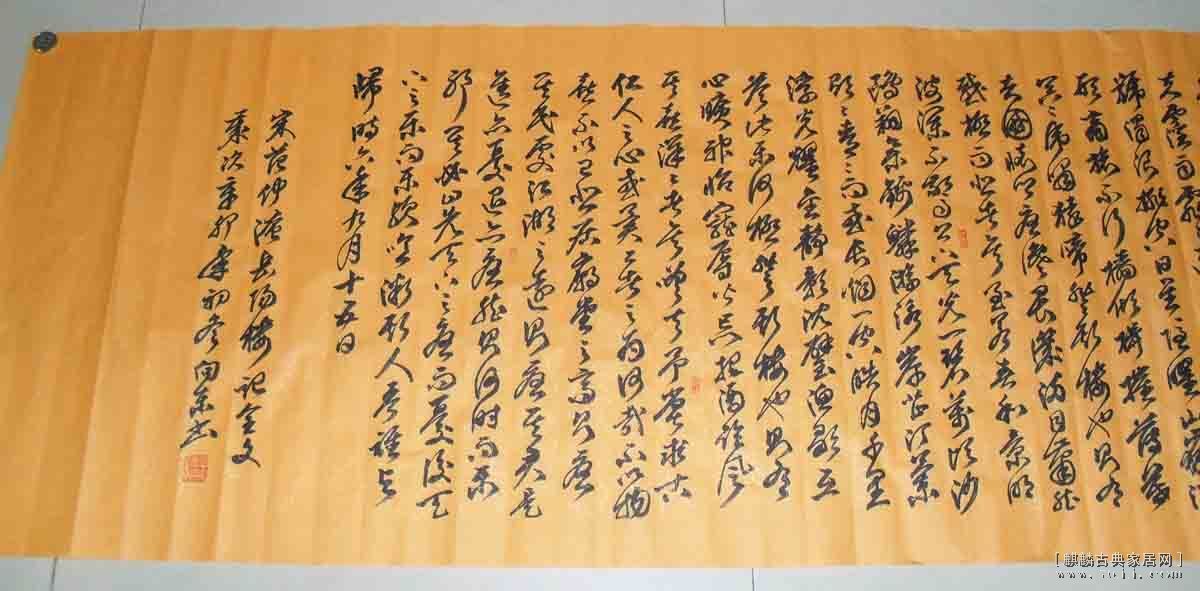 夫霪雨霏
号濁浪排空日星隐曜山岳潜
形商旅不行檣倾楫摧薄暮
冥冥虎嘯猿啼登斯楼也则有
去國懷乡忧谗畏讥满目蕭然
感極而悲者矣至若春和景明
波澜不惊上下天光一碧萬顷沙
鷗翔集锦鳞游泳岸芷汀蘭
郁郁青青而或长烟一空皓月千里
浮光耀金静影沈璧渔歌互
答此乐何極登斯楼也则有
心曠神怡寵辱皆忘把酒临風
其喜洋洋者矣嗟夫予尝求古
仁人之心或异二者之为何哉不以物
喜不以己悲居廟堂之高则忧
其民处江湖之远则忧其君是
進亦忧退亦忧然则何时而乐
耶其必曰先天下之忧而忧後天
下之乐而乐欤噫微斯人吾谁与
歸时六年九月十五日
宋范仲淹岳阳楼记全文
歲次辛卯年初冬向东书
[麒麟古典家居网]